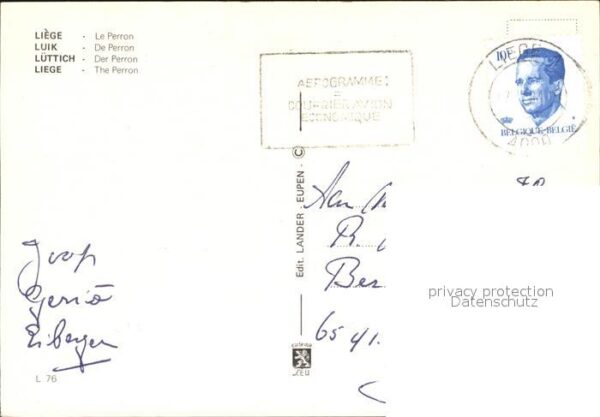 LIÈGE - Le Perron
LUIK - De Perron
LÜTTICH - Der Perron
LIEGE - The Perron
AEROGRAMME:
=
COURRIER AVION
ECONOMIQUE
10F
BELGIQUE-BELGIË
LIEGE
4000
Edit. LANDER - EUPEN - ©
Aan
R.
Ber
6541.
Joop
Gerrie
Eibergen
L 76
privacy protection
Datenschutz